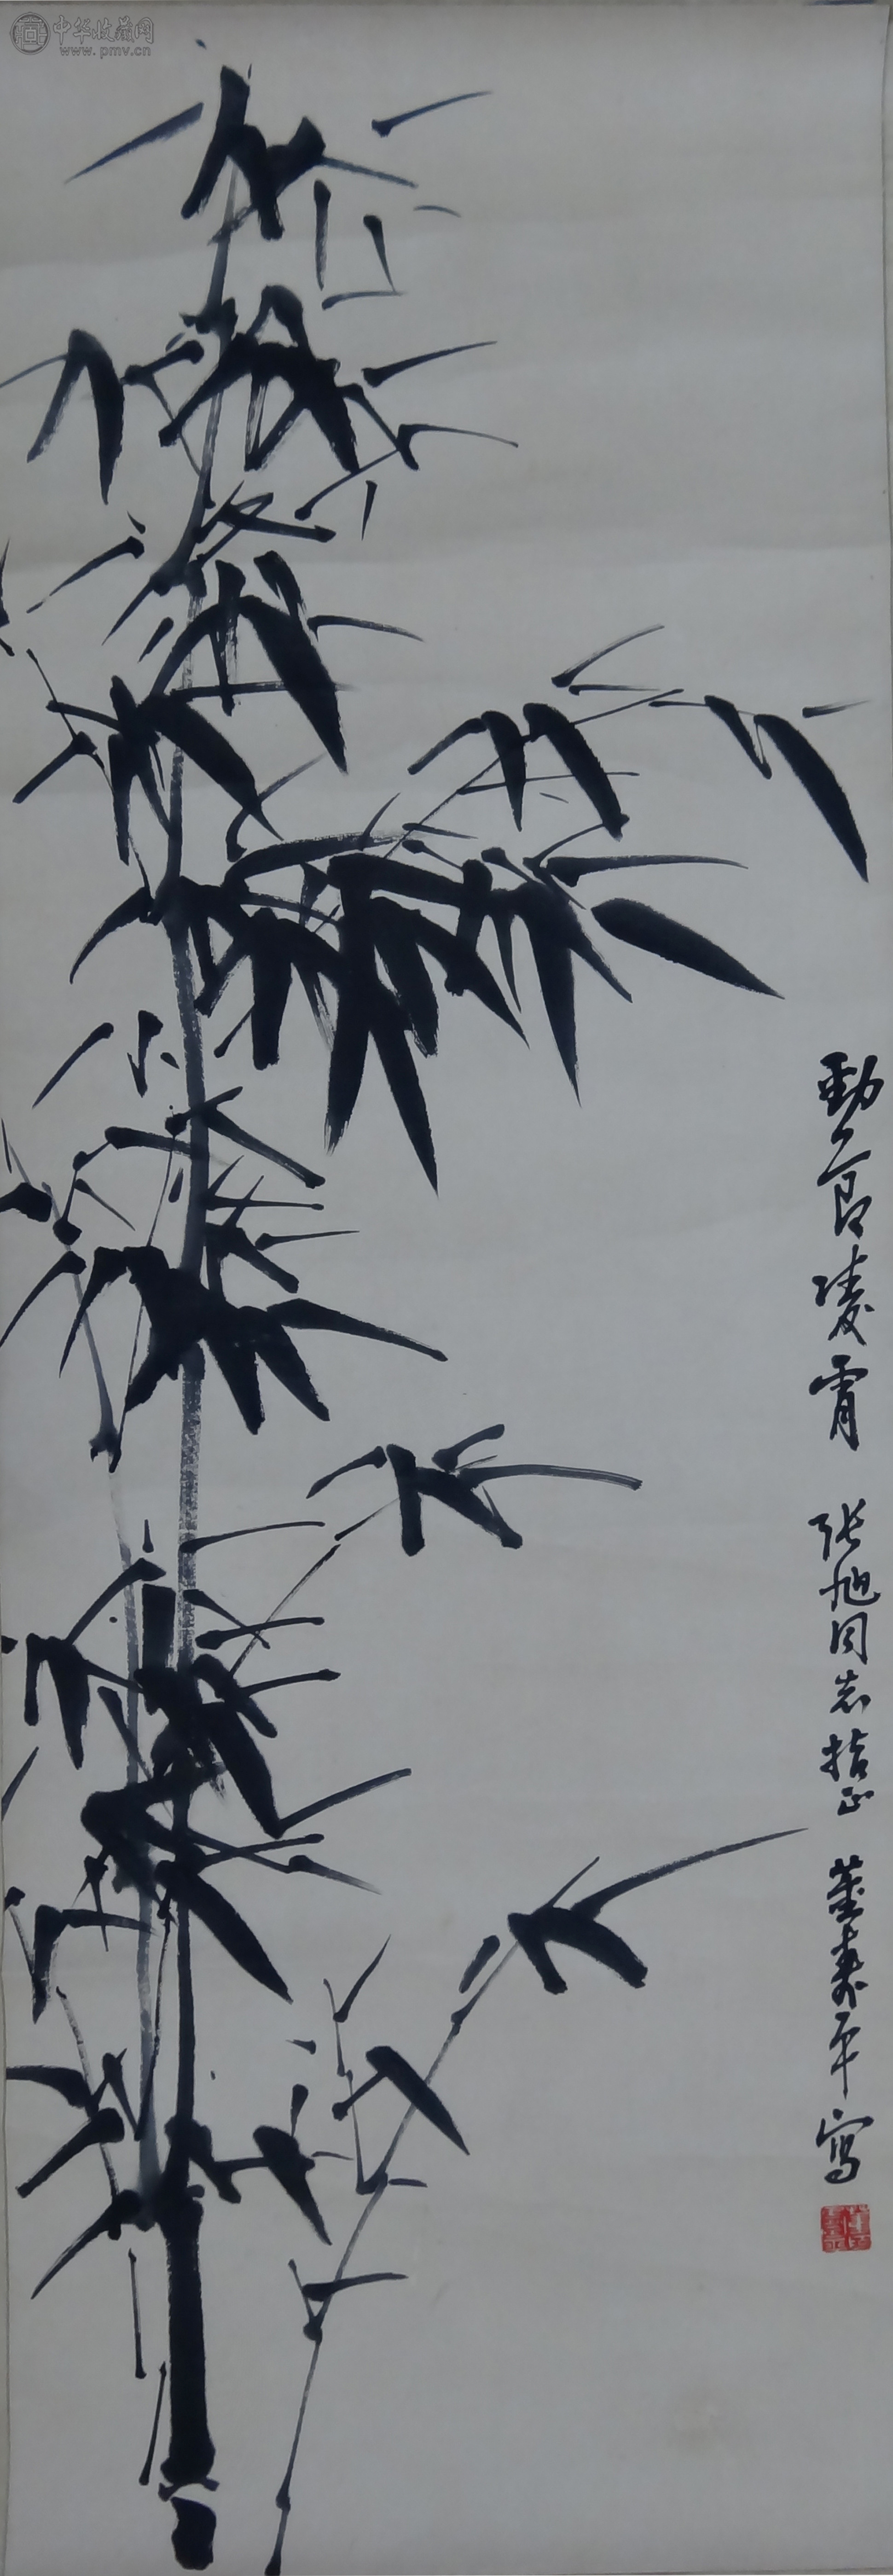 中华收藏网
www.pmv.cn
劲节凌霄 张旭同志指正 董寿平写